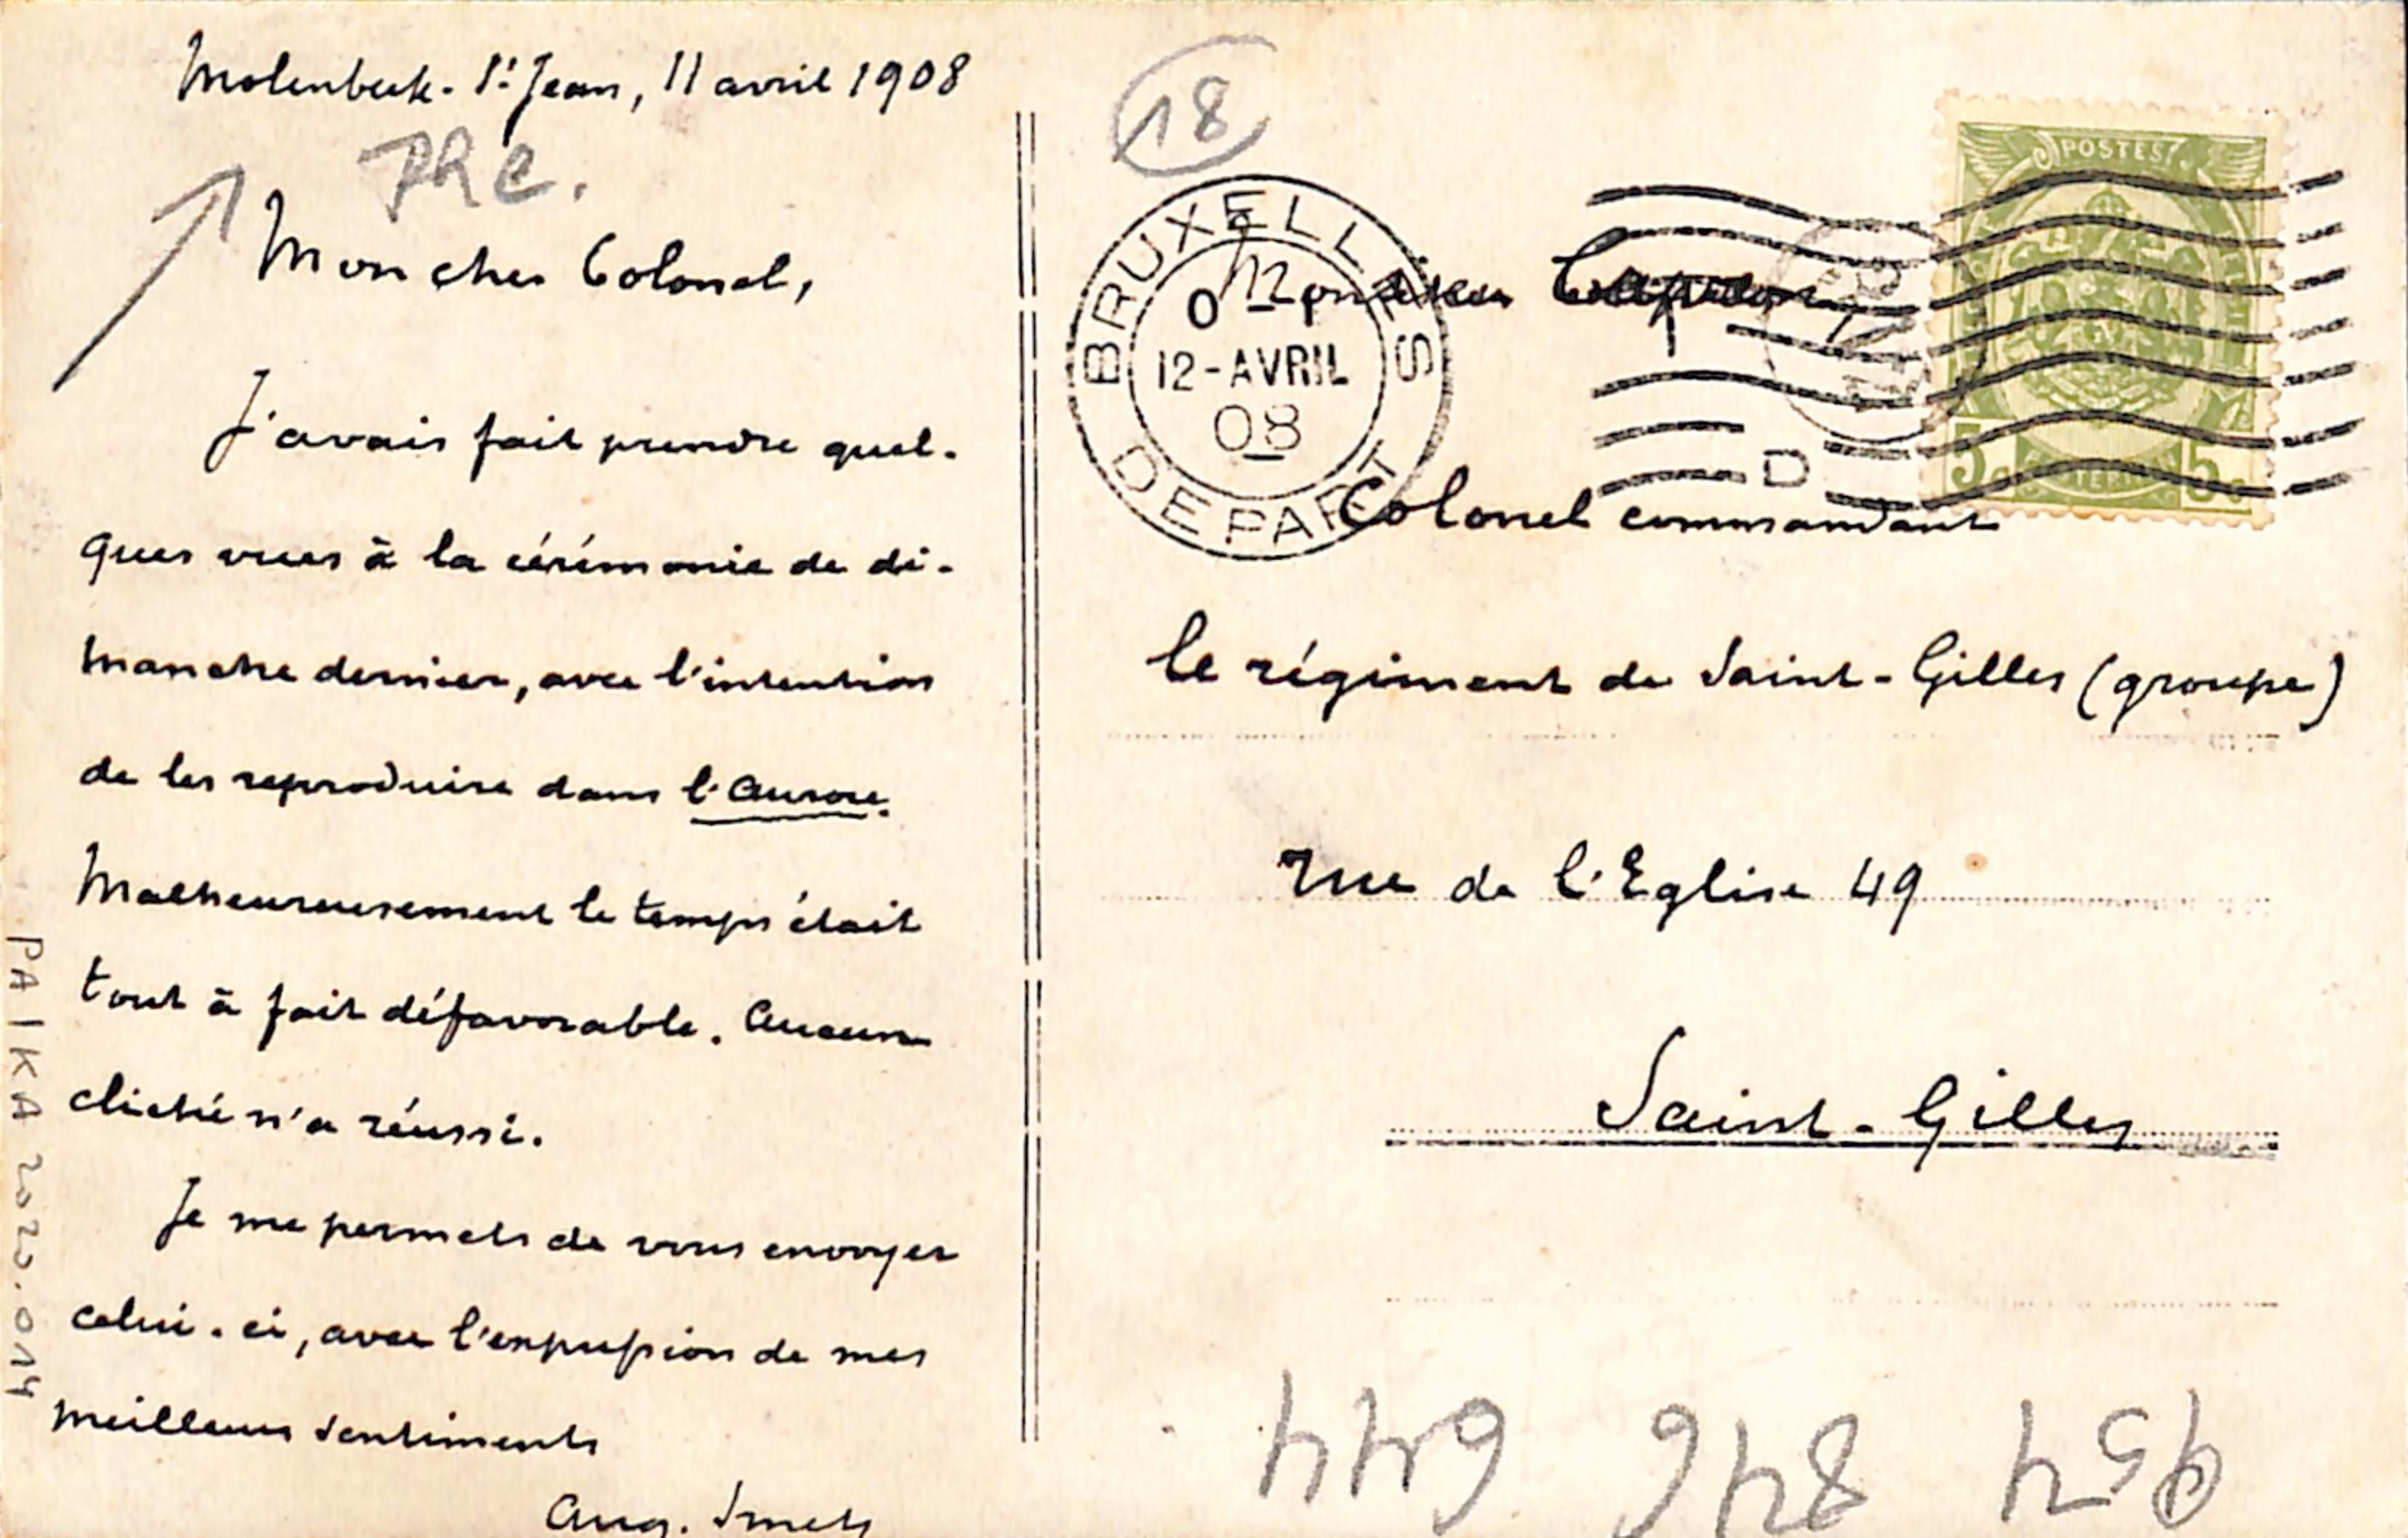 Molenbeek-St Jean, 11 avril 1908
PRE.
Mon cher Colonel,
J'avais fait prendre quel-
ques vues à la cérémonie de di-
manche dernier, avec l'intention
de les reproduire dans l'Aurore.
Malheureusement le temps était
tout à fait défavorable. Aucun
cliché n'a réussi.
Je me permets de vous envoyer
celui-ci, avec l'expression de mes
meilleurs sentiments
Aug. Smets
PAIKA 2020.014
18
BRUXELLES
12-AVRIL
08
DEPART
D
POSTES
5c 5c
Monsieur
Colonel commandant
le régiment de Saint-Gilles (groupe)
rue de l'Eglise 49
Saint-Gilles